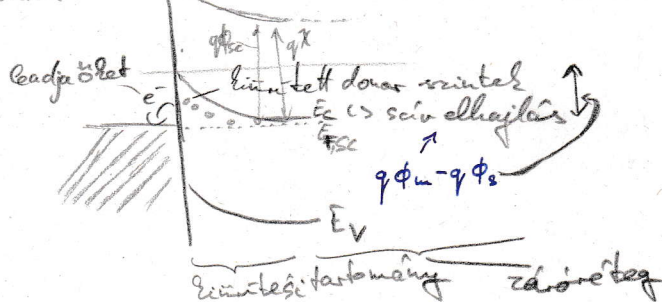 qϕsc qχ
leadja őket
e⁻
kiürített donor szintek
Ec ↔ sáv elhajlás
EF,SC
qϕm-qϕs
EV
kiürítési tartomány záróréteg